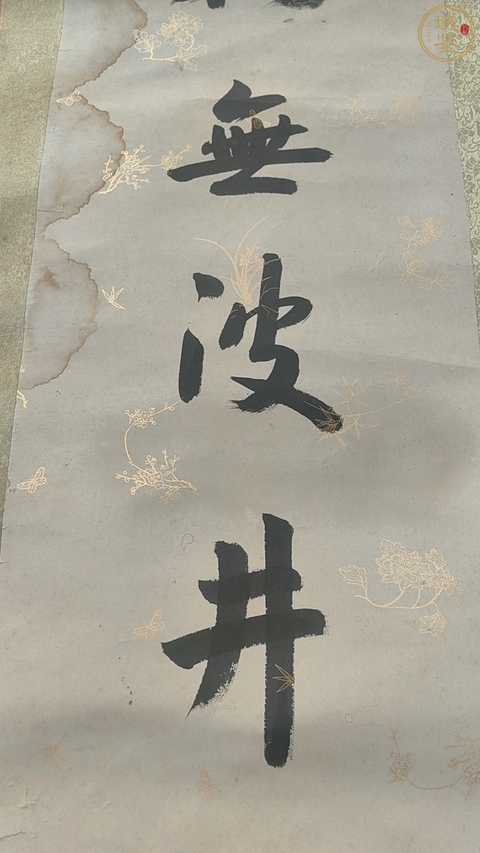 無波井